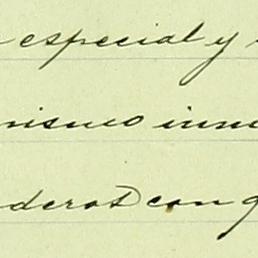 especial y
mismo inme
deros con q